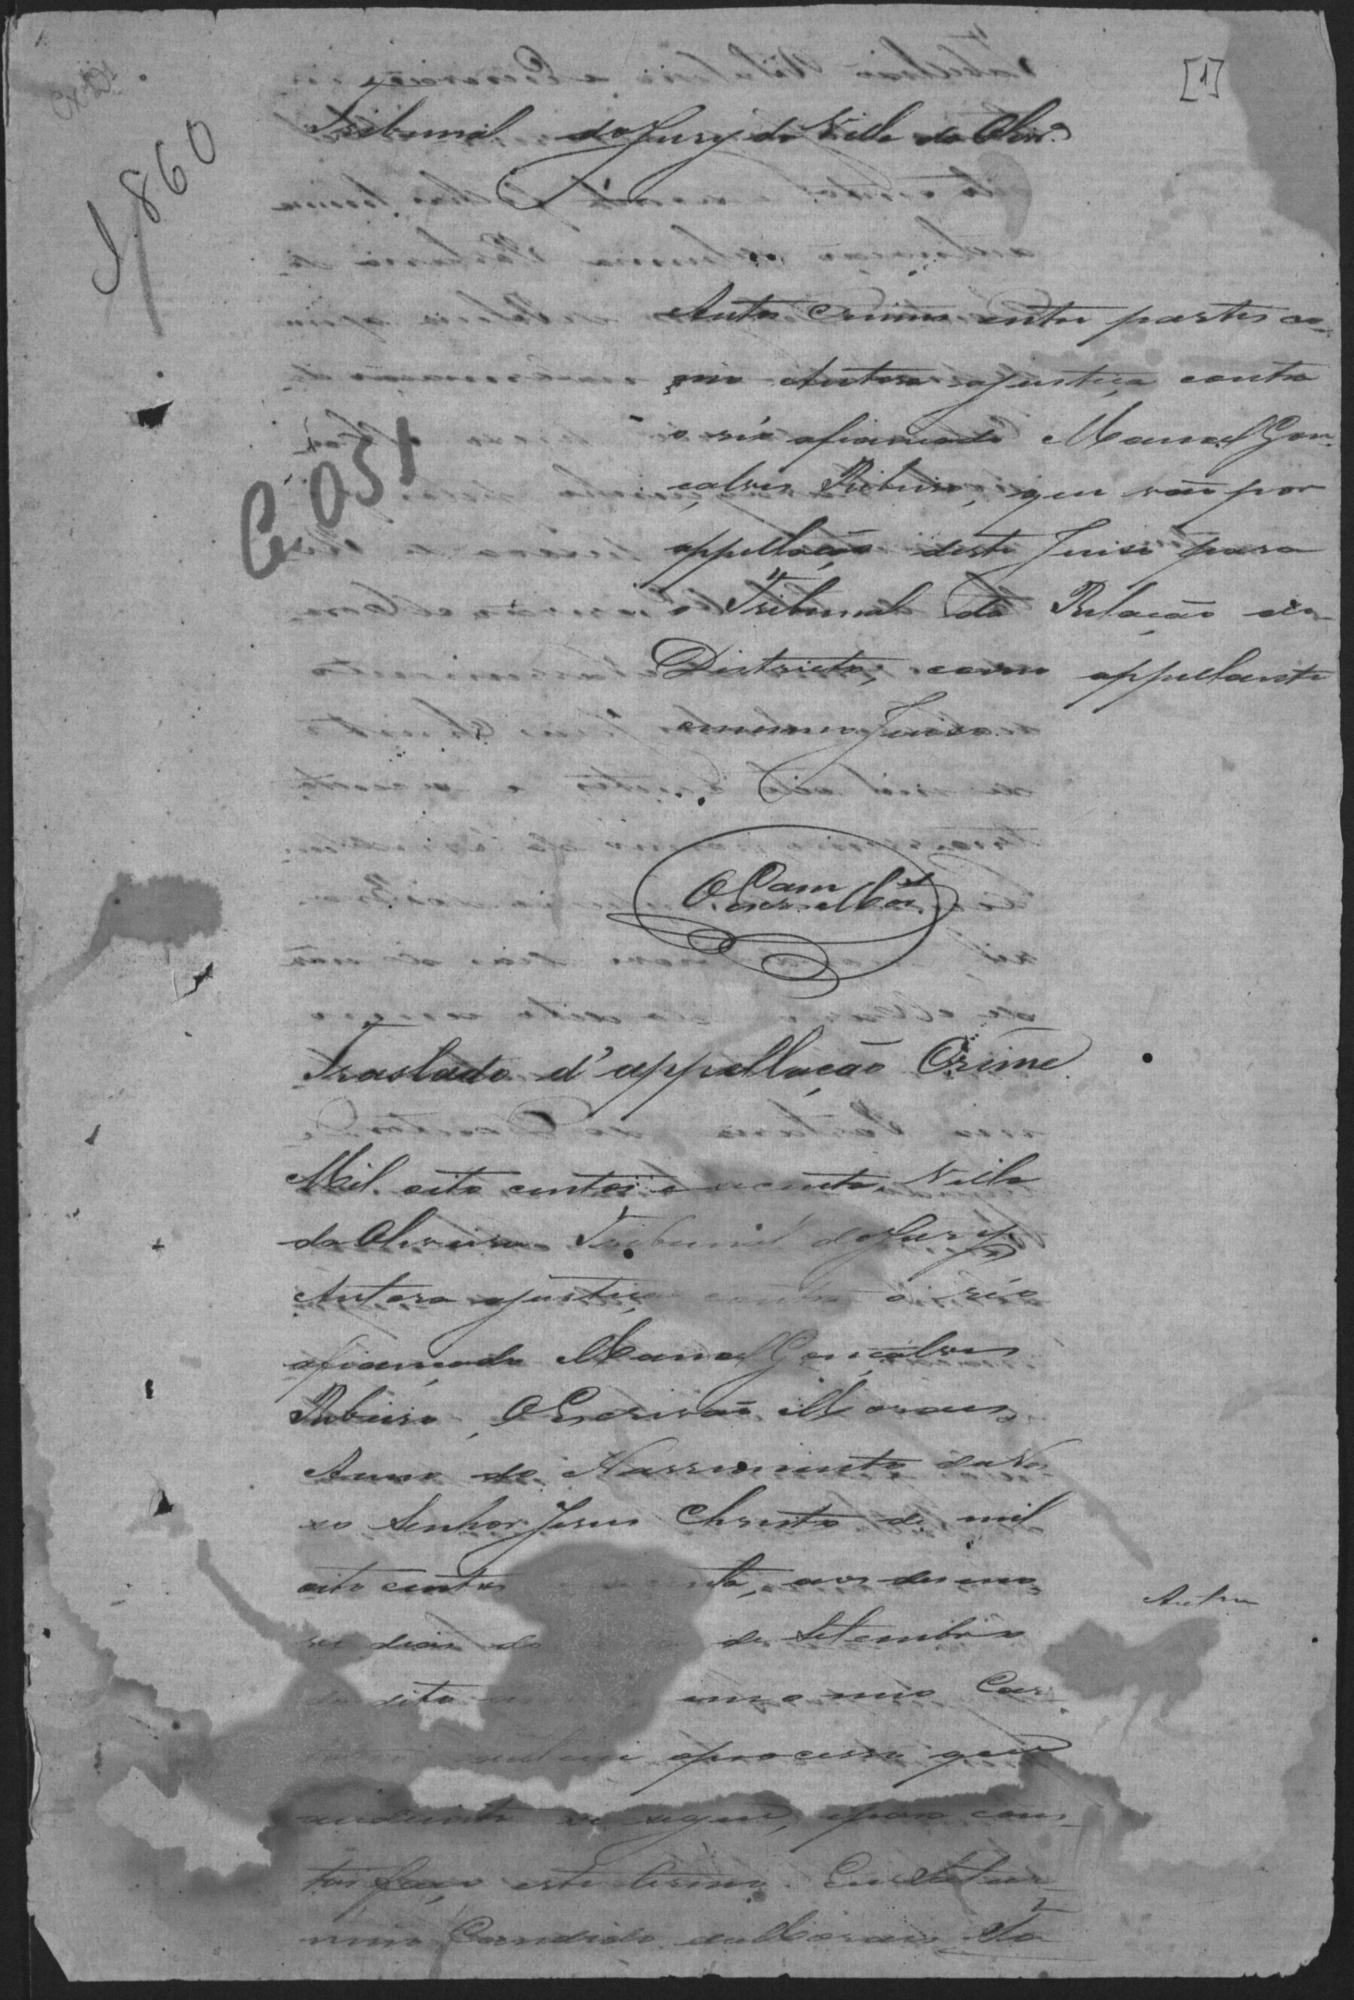 [1]
1860
Tribunal do Jury da Villa da Olivrª
C. 051
Autos Crimes entre partes co-
mo Autora a Justiça contra
o réo afiançado Manoel Gon-
çalves Ribeiro, que vão por
appellação deste Juiso para
o Tribunal da Relação do
Districto, como appellante
o mesmo Juiso.
O Escr.
Traslado d'appellação Crime
Mil oito centos e secenta. Villa
da Oliveira Tribunal do Jury
Autora a Justiça contra o réo
afiançado Manoel Gonçalves
Ribeiro. O Escrivão Moraes
Anno do Nassimento de
Senhor Jesus Christo de mil
oito centos e secenta, aos deseno-
ve dias do de Setembro
do dito em o meo Car-
o processo que
audiante se segue, e para cons-
tar faço este termo. Eu Satur-
nino Candido de Moraes